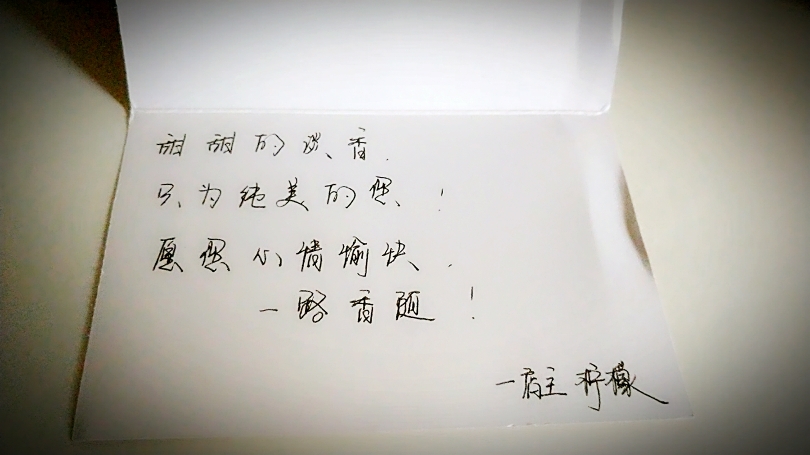 甜甜的淡香.
只为纯美的您!
愿您心情愉快.
一路香随!
一店主 柠檬